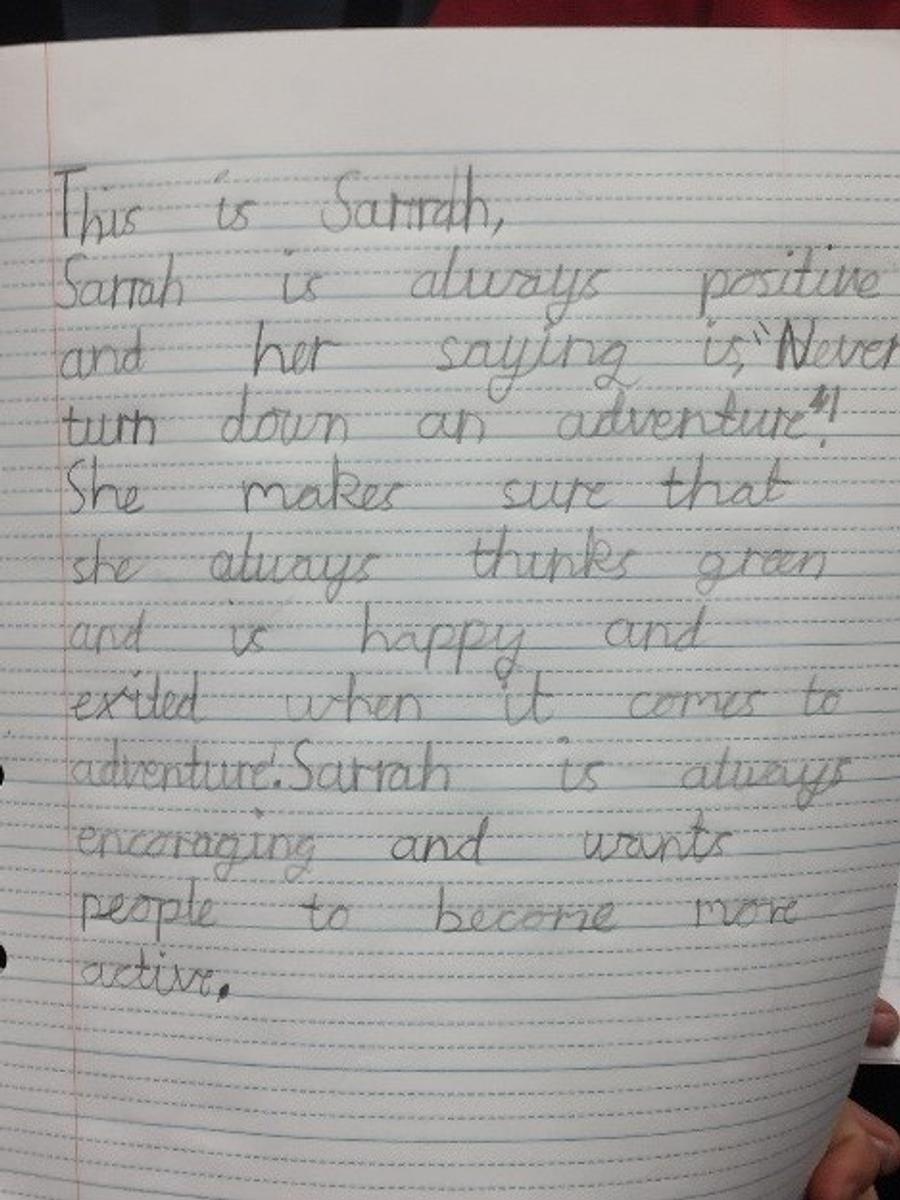 This is Sarrah,
Sarrah is always positive
and her saying is, "Never
turn down an adventure"!
She makes sure that
she always thinks green
and is happy and
exited when it comes to
adventure!. Sarrah is always
encoraging and wants
people to become more
active.